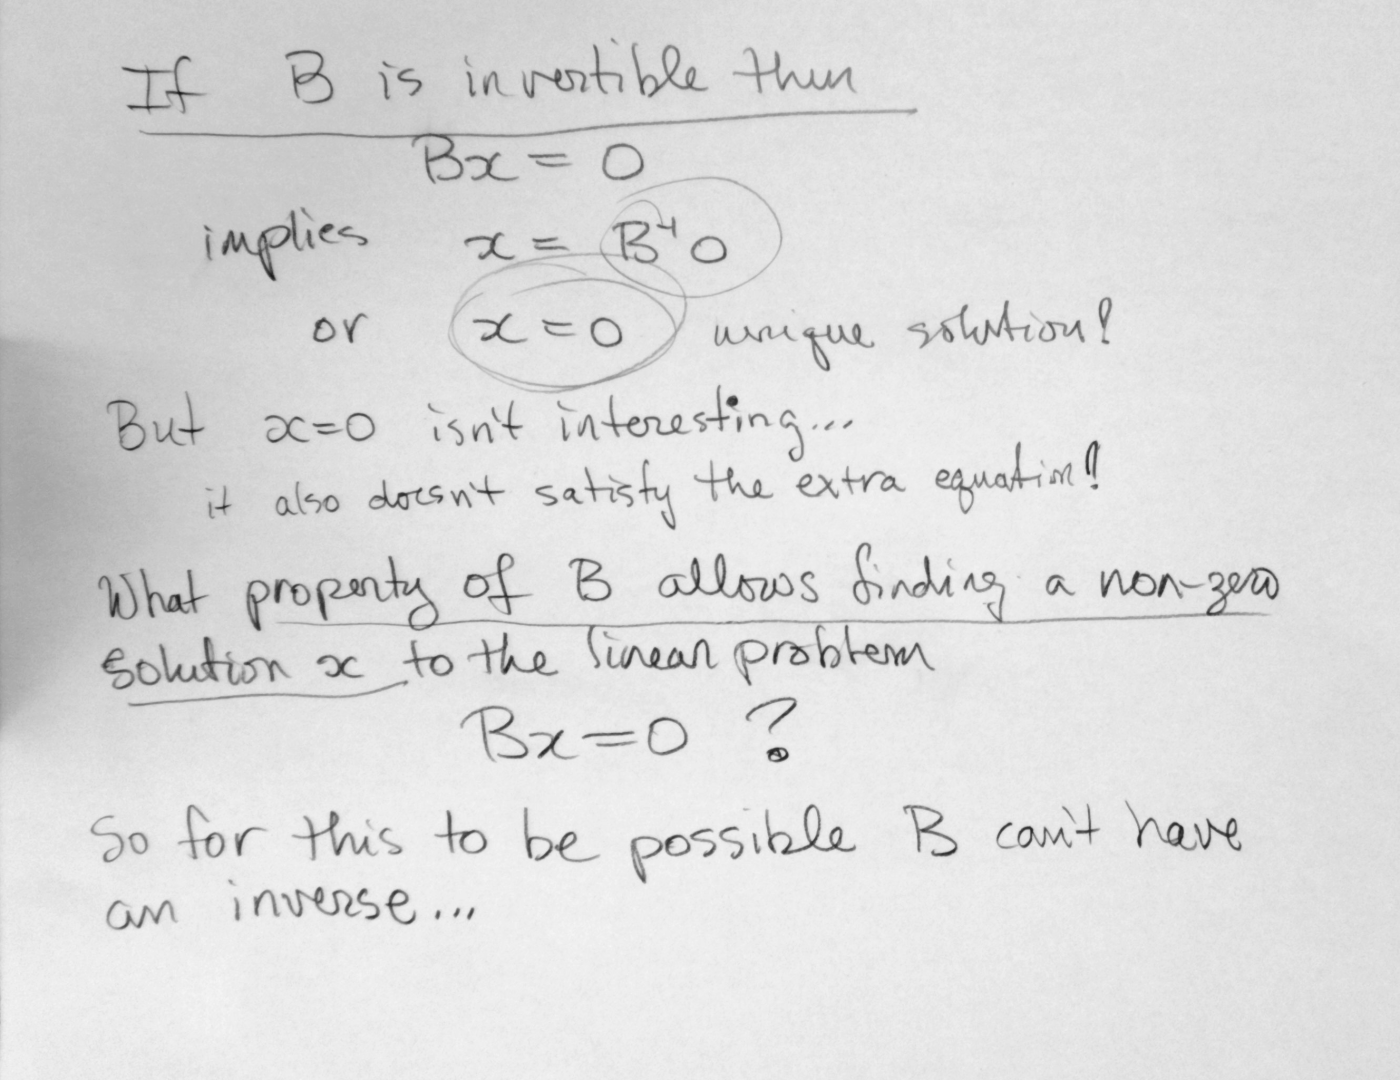 If B is invertible then
Bx = 0
implies x = B⁻¹0
or x = 0 unique solution!
But x=0 isn't interesting...
it also doesn't satisfy the extra equation!
What property of B allows finding a non-zero
solution x to the linear problem
Bx=0 ?
So for this to be possible B can't have
an inverse...